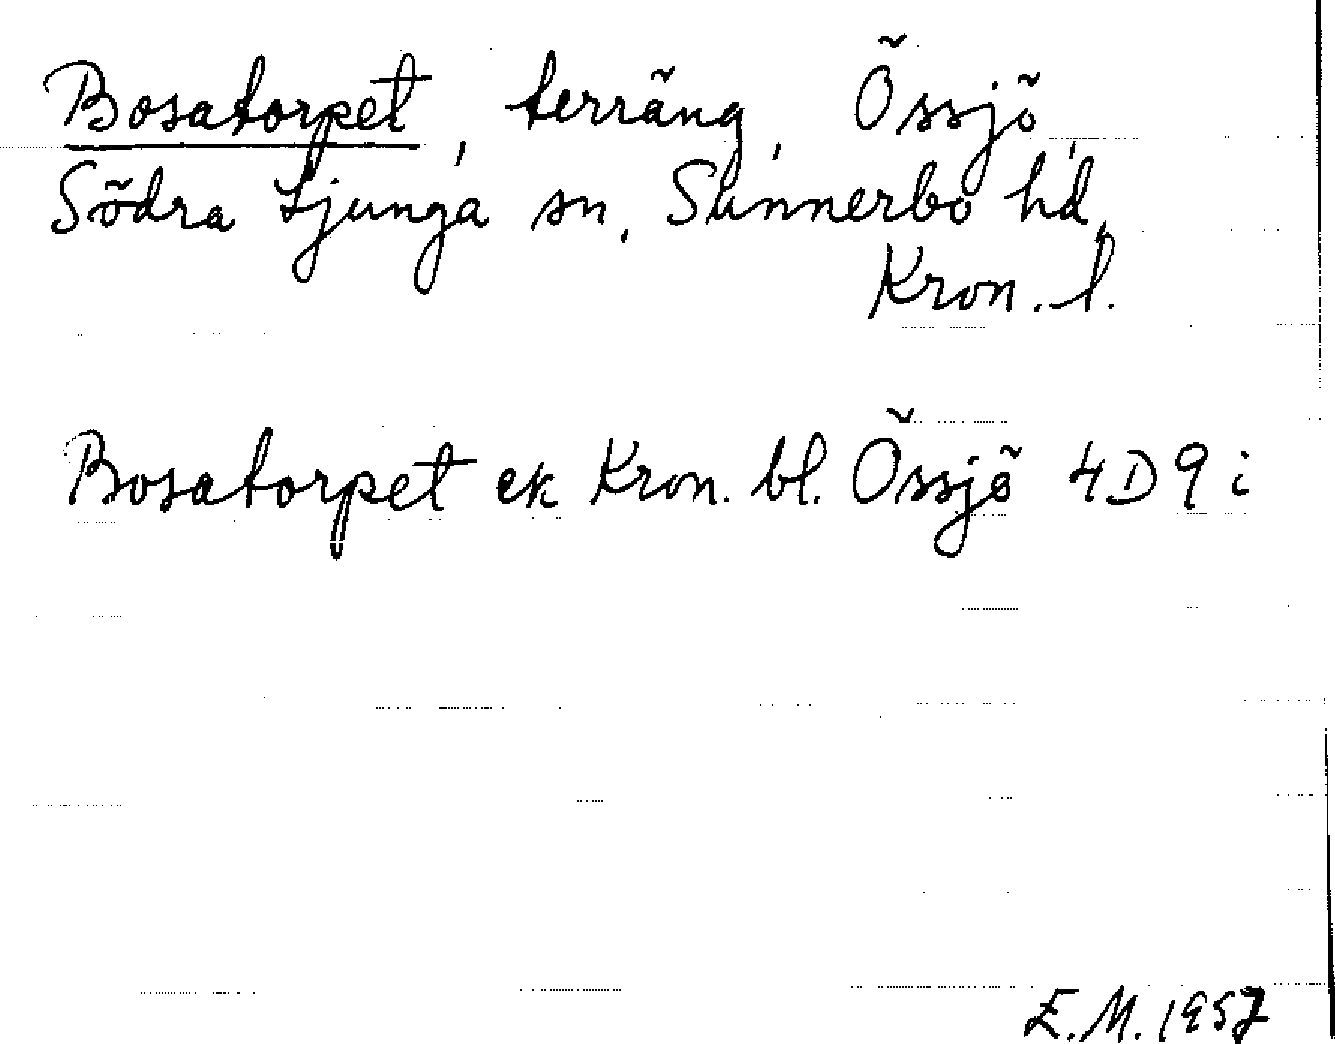 Bosatorpet, terräng, Össjö,
Södra Ljunga sn, Sunnerbo hd,
Kron. l.
Bosatorpet ek Kron. bl. Össjö 4D9i
E.M. 1957